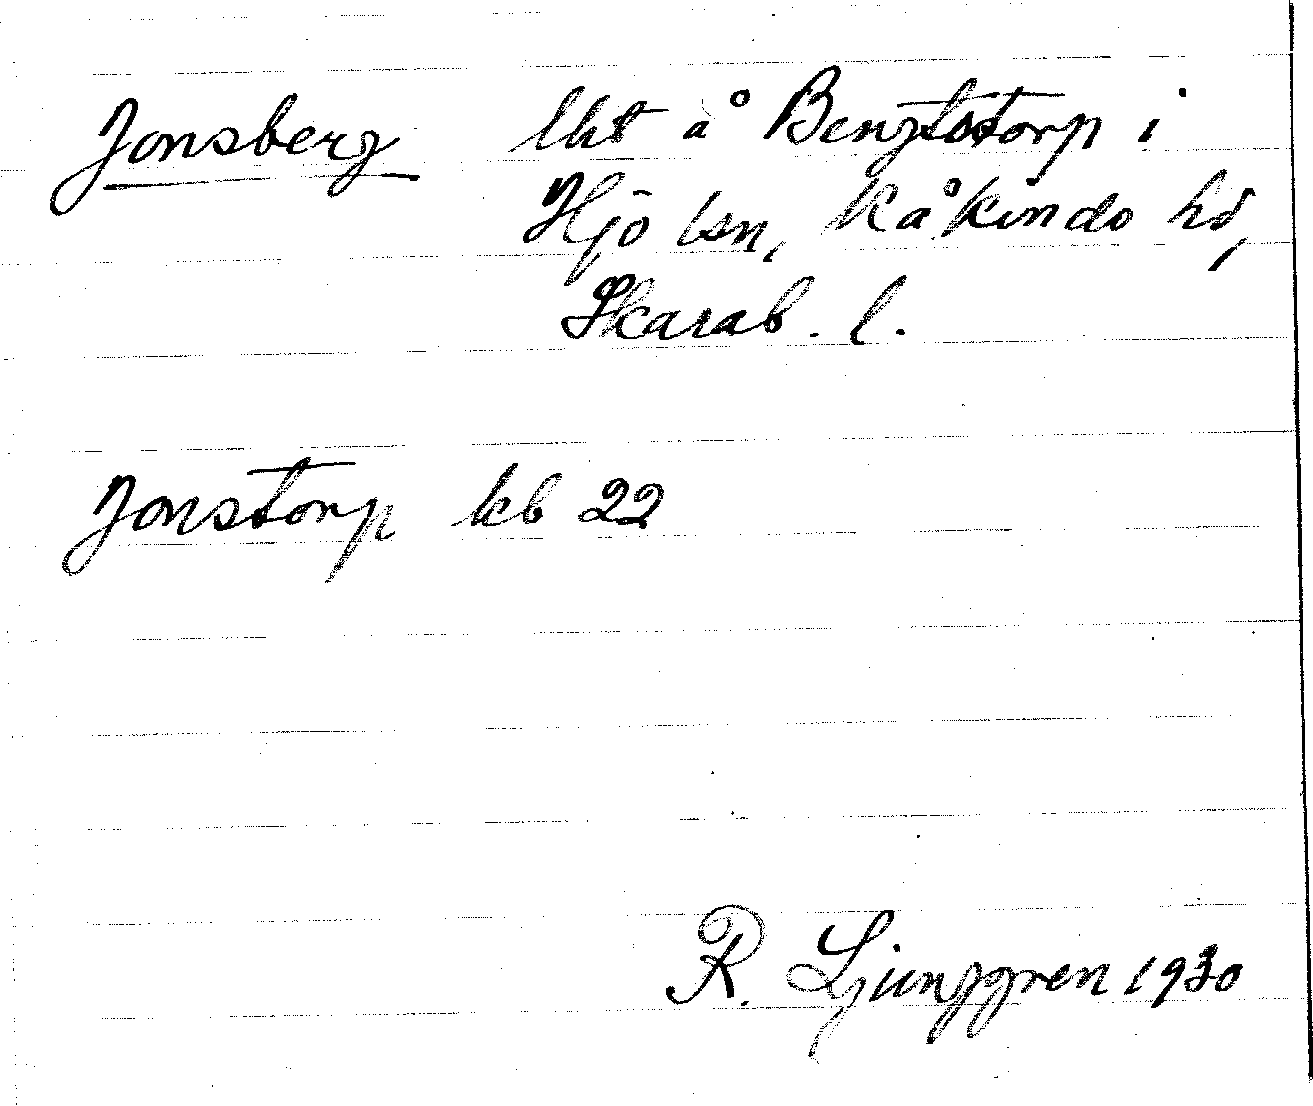 Jonsberg lht å Bengtstorp i
Hjo lsn, Kåkindo hd,
Skarab. l.
Jonstorp kb 22
R. Ljunggren 1930